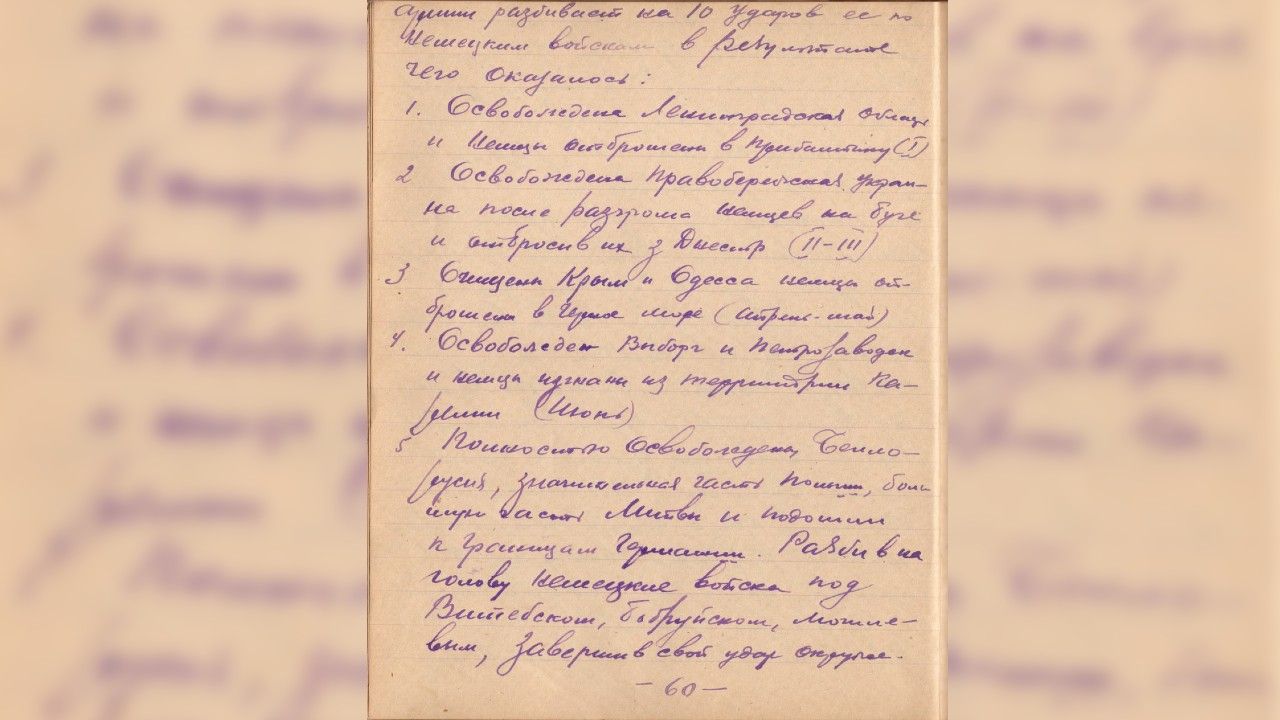 Армии разбивает на 10 ударов ее по
немецким войскам в результате
чего оказалось:
1. Освобождена Ленинградская област
и немцы отброшены в Прибалтику (I)
2 Освобождена Правобережская Украи-
на после разгрома немцев на буге
и отбросив их з Днестр (II-III)
3 Очищены Крым и Одесса немцы от-
брошены в Черное море (Апрель-май)
4. Освобожден Выборг и Петрозаводск
и немцы изгнаны из территории Ка-
релии (Июнь)
5 Полностью Освобождена Бело-
русия, значительная часть Польши, боль
шую часть Литвы и подошли
к границам Германии. Разбив на
голову немецкие войска под
Витебском, Бобруйском, Могиле-
вым, завершив свой удар окруже-
- 60 -